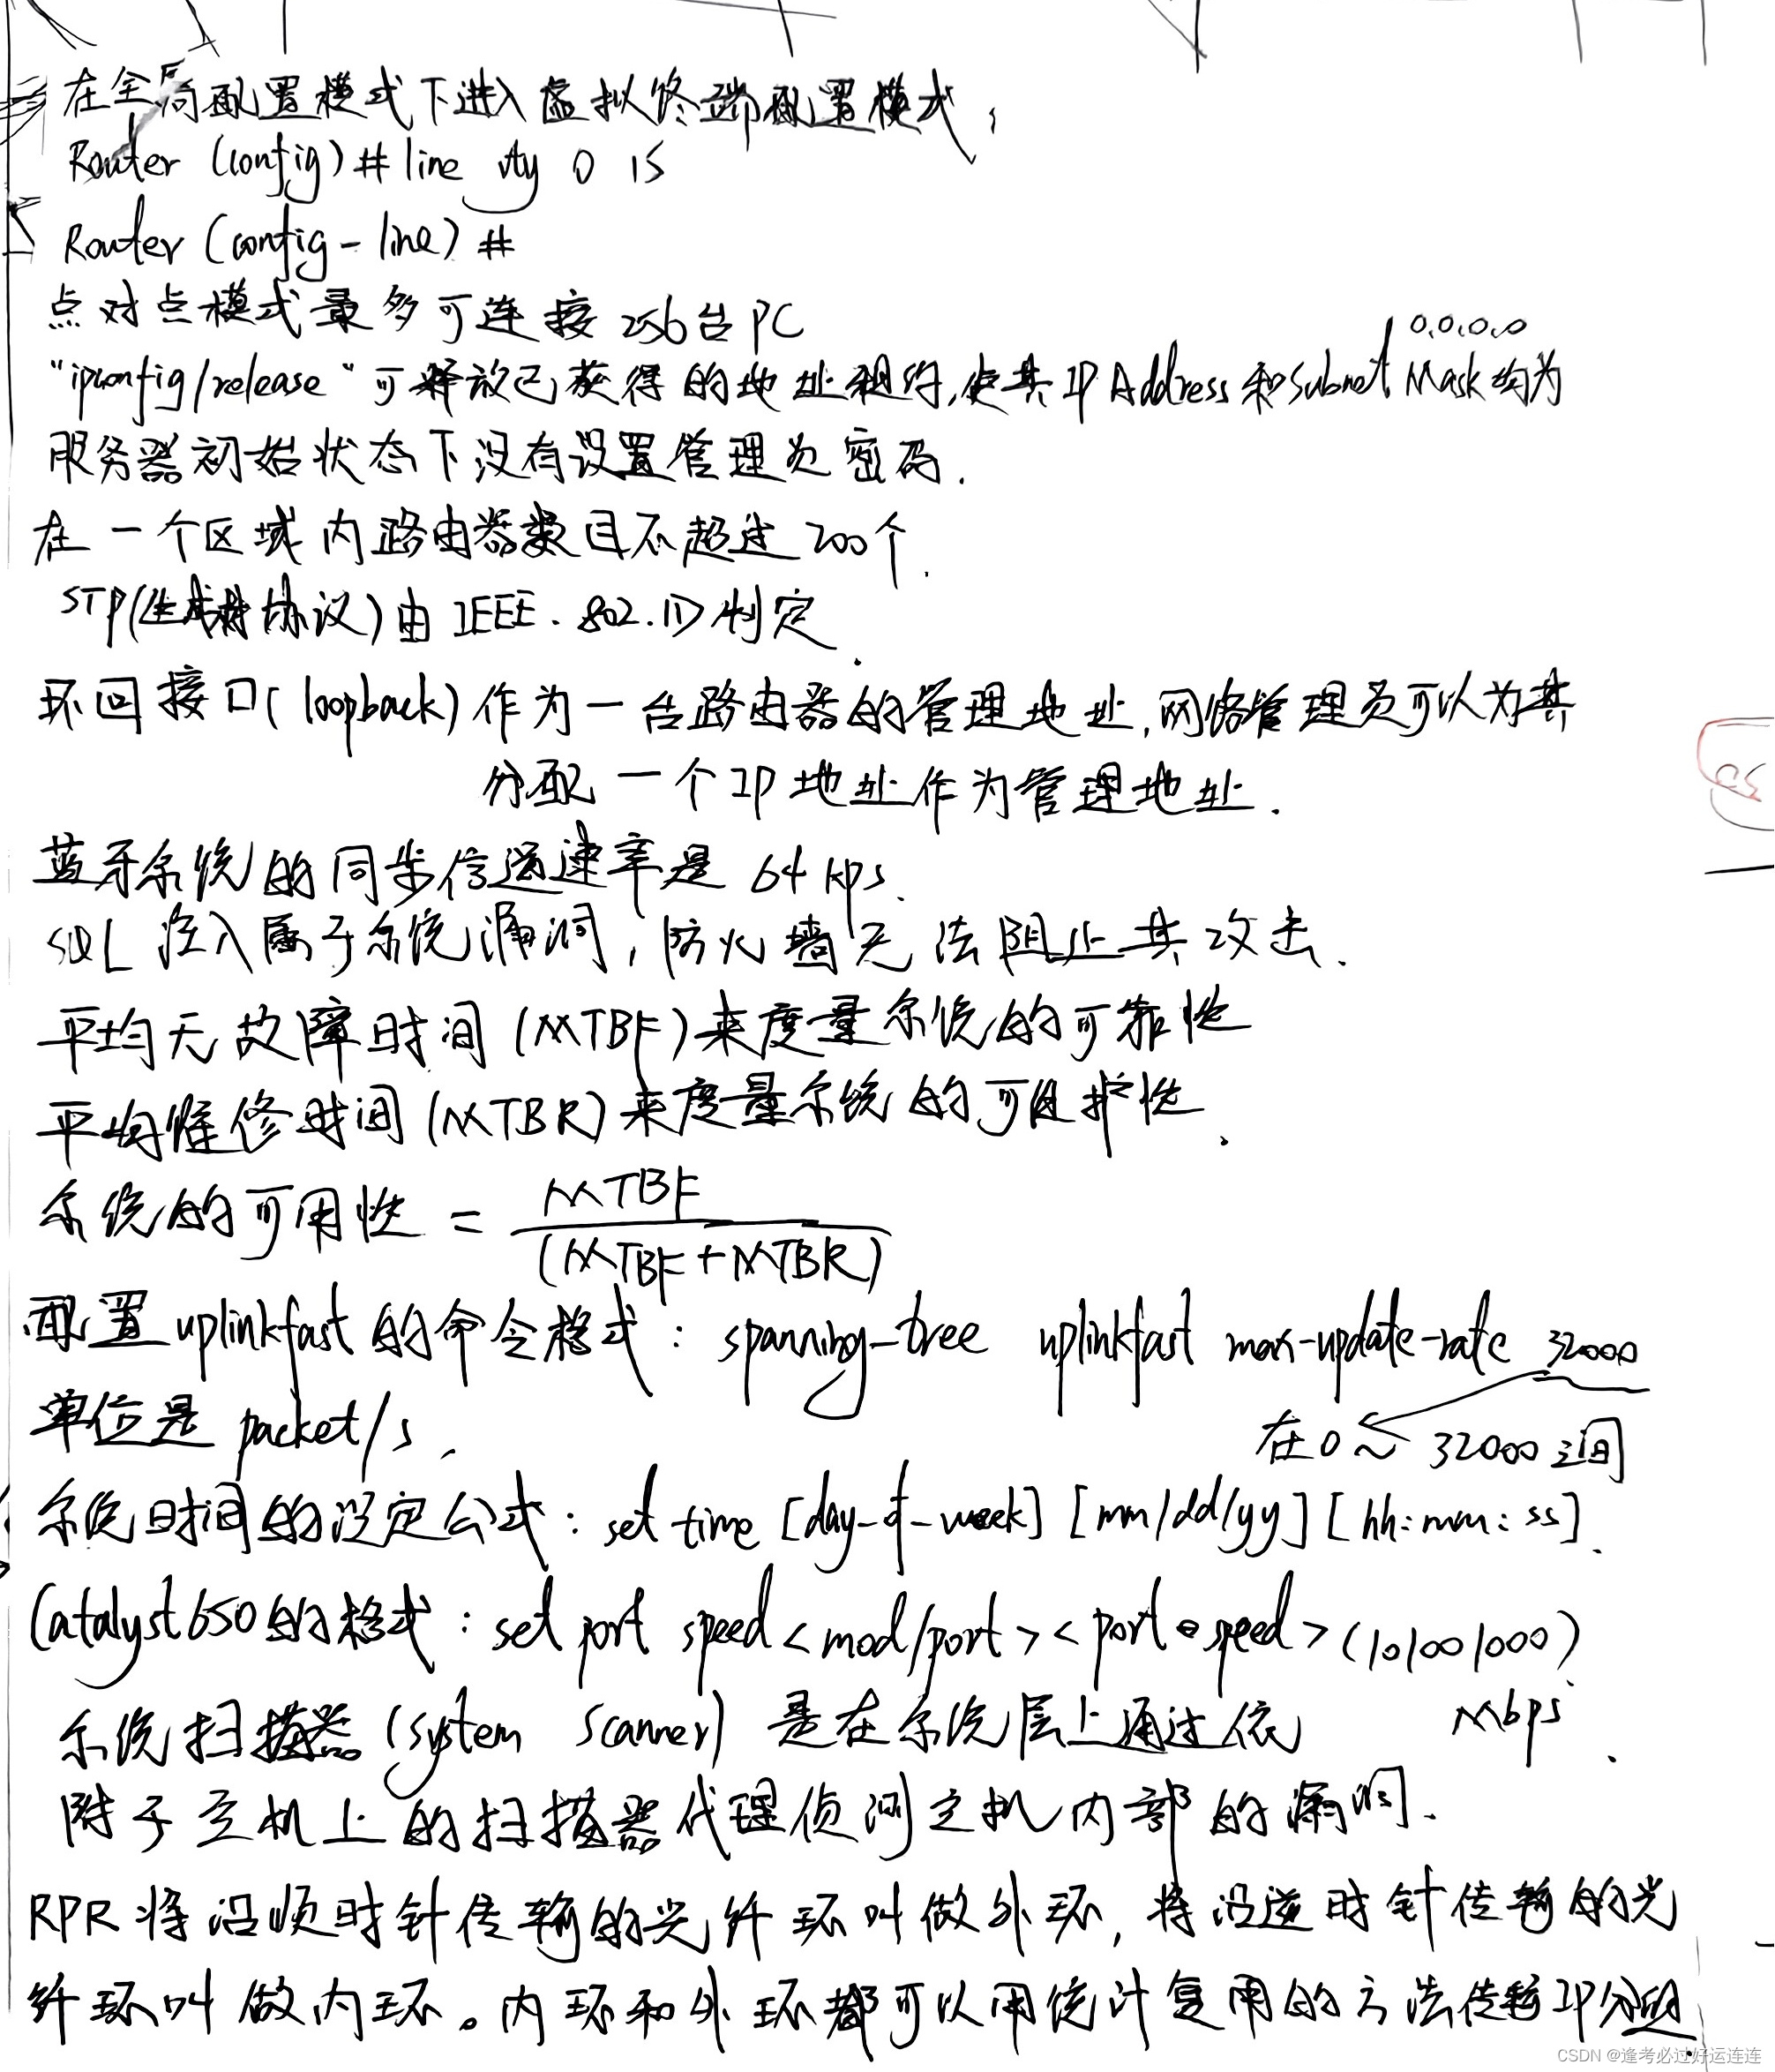 在全局配置模式下进入虚拟终端配置模式,
Router (config)# line vty 0 15
Router (config-line)#
点对点模式最多可连接256台PC
0.0.0.0
"ipconfig/release"可释放已获得的地址租约,使其IP Address和Subnet Mask均为
服务器初始状态下没有设置管理员密码.
在一个区域内路由器数目不超过200个.
STP(生成树协议)由IEEE.802.1D制定.
环回接口(loopback)作为一台路由器的管理地址,网络管理员可以为其
分配一个IP地址作为管理地址.
蓝牙系统的同步信道速率是64kps.
SQL注入属于系统漏洞,防火墙无法阻止其攻击.
平均无故障时间(MTBF)来度量系统的可靠性
平均维修时间(MTBR)来度量系统的可维护性.
系统的可用性 = MTBF
(MTBF+MTBR)
配置uplinkfast的命令格式: spanning-tree uplinkfast max-update-rate 32000
单位是packet/s.
在0~32000之间
系统时间的设定公式: set time [day-of-week] [mm/dd/yy] [hh:mm:ss].
Catalyst650的格式: set port speed <mod/port> <port speed> (10/100/1000)
Mbps.
系统扫描器(system scanner)是在系统层上通过依
附于主机上的扫描器代理侦测主机内部的漏洞.
RPR将沿顺时针传输的光纤环叫做外环,将沿逆时针传输的光
纤环叫做内环。内环和外环都可以用统计复用的方法传输IP分组.
CSDN @逢考必过好运连连